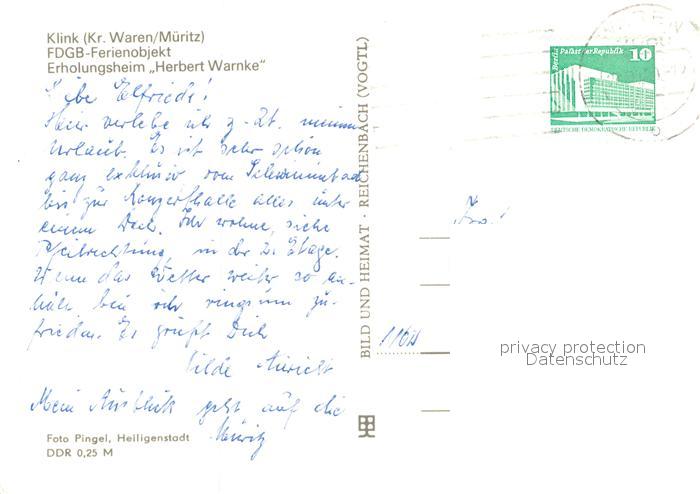 Klink (Kr. Waren/Müritz)
FDGB-Ferienobjekt
Erholungsheim „Herbert Warnke“
Liebe Elfriede!
Hier verlebe ich z. Zt. meinen
Urlaub. Es ist sehr schön
ganz exklusiv vom Schwimmbad
bis zur Konzerthalle alles unter
einem Dach. Ich wohne, siehe
Pfeilrichtung, in der 2. Etage.
Wenn das Wetter weiter so an-
hält, bin ich ringsum zu-
frieden. Es grüßt Dich
Hilde
Mein Ausblick geht auf die
Müritz
Foto Pingel, Heiligenstadt
DDR 0,25 M
BILD UND HEIMAT · REICHENBACH (VOGTL)
Berlin, Palast der Republik
10
DEUTSCHE DEMOKRATISCHE REPUBLIK
privacy protection
Datenschutz